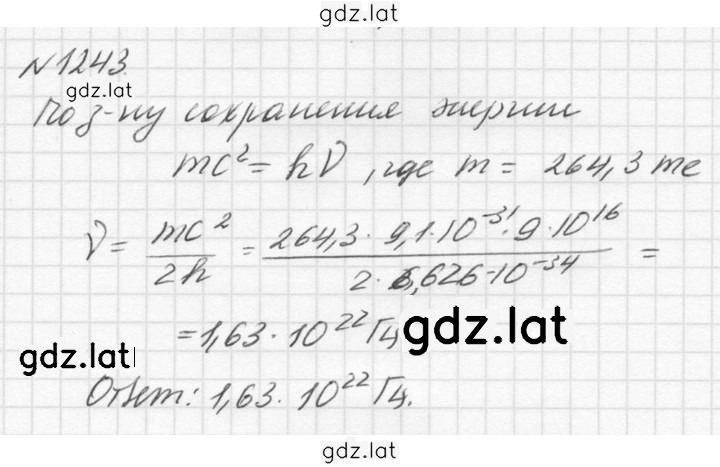 gdz.lat
№1243.
gdz.lat
По з-ну сохранения энергии
mc² = hν, где m = 264,3 me
ν = mc²/2h = 264,3 · 9,1 · 10⁻³¹ · 9 · 10¹⁶ / 2 · 6,626 · 10⁻³⁴ =
= 1,63 · 10²² Гц gdz.lat
gdz.lat
Ответ: 1,63 · 10²² Гц.
gdz.lat